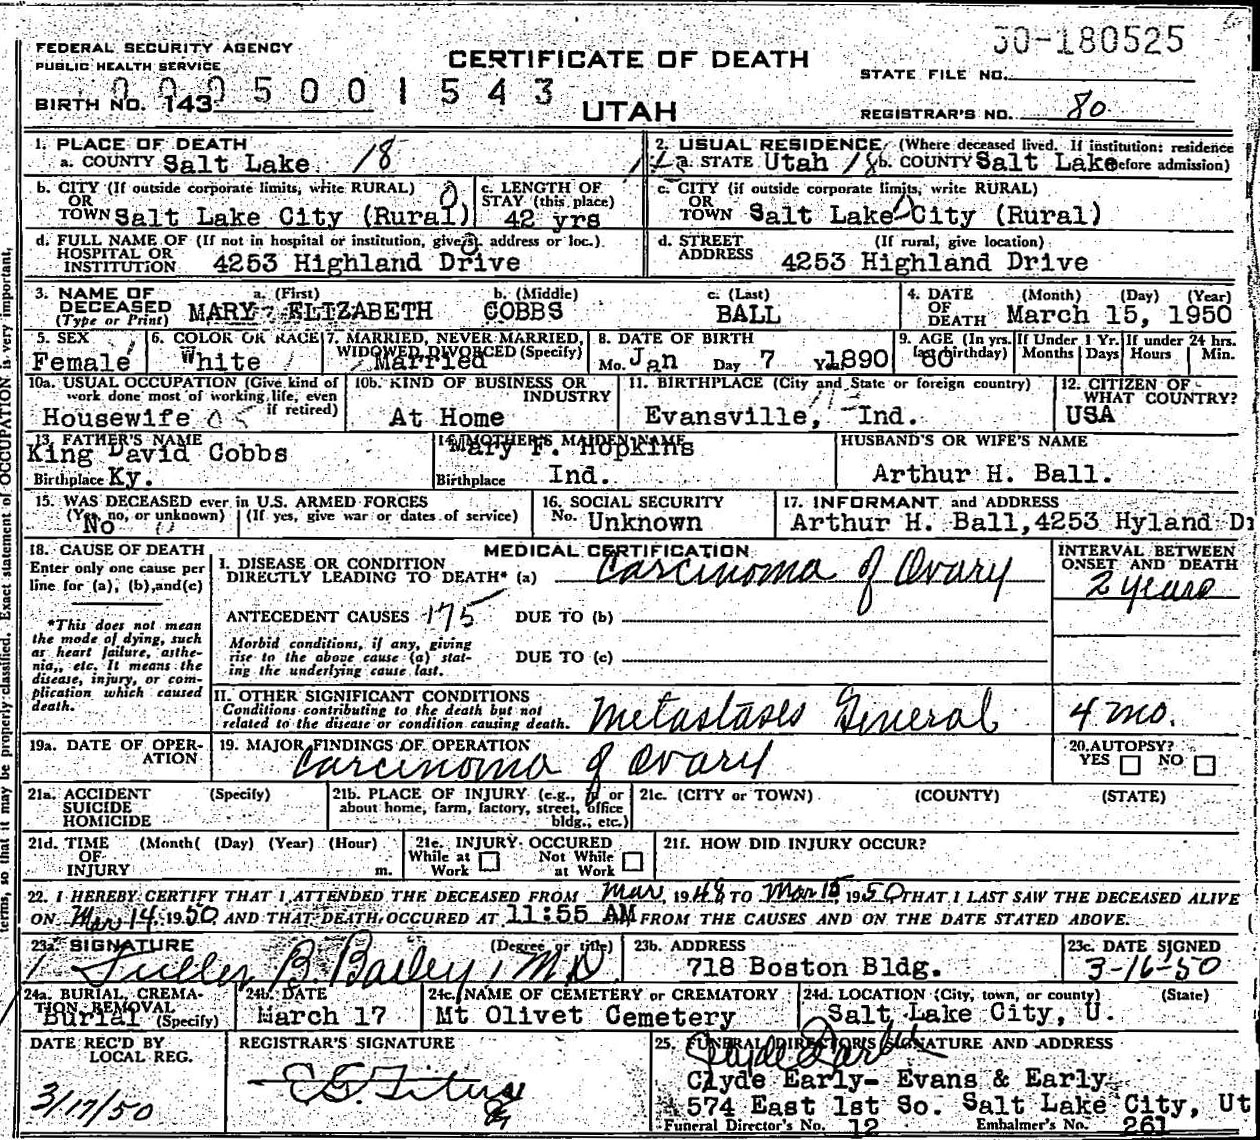 FEDERAL SECURITY AGENCY
PUBLIC HEALTH SERVICE
CERTIFICATE OF DEATH
UTAH
50-180525
STATE FILE NO.
BIRTH NO. 143
0005001543
REGISTRAR'S NO. 80
1. PLACE OF DEATH
a. COUNTY Salt Lake 18
2. USUAL RESIDENCE (Where deceased lived. If institution: residence before admission)
a. STATE Utah 18 b. COUNTY Salt Lake
b. CITY (If outside corporate limits, write RURAL)
OR
TOWN Salt Lake City (Rural)
c. LENGTH OF
STAY (this place)
42 yrs
c. CITY (if outside corporate limits, write RURAL)
OR
TOWN Salt Lake City (Rural)
d. FULL NAME OF (If not in hospital or institution, give st. address or loc.)
HOSPITAL OR
INSTITUTION 4253 Highland Drive
d. STREET (If rural, give location)
ADDRESS 4253 Highland Drive
3. NAME OF DECEASED (Type or Print)
a. (First) b. (Middle) c. (Last)
MARY ELIZABETH COBBS BALL
4. DATE OF DEATH (Month) (Day) (Year)
March 15, 1950
5. SEX
Female
6. COLOR OR RACE
White
7. MARRIED, NEVER MARRIED,
WIDOWED, DIVORCED (Specify)
Married
8. DATE OF BIRTH
Mo. Jan Day 7 Yr. 1890
9. AGE (In yrs. last birthday)
60
If Under 1 Yr.
Months Days
If under 24 hrs.
Hours Min.
10a. USUAL OCCUPATION (Give kind of
work done most of working life, even
if retired)
Housewife 05
10b. KIND OF BUSINESS OR
INDUSTRY
At Home
11. BIRTHPLACE (City and State or foreign country)
Evansville, Ind.
12. CITIZEN OF
WHAT COUNTRY?
USA
13. FATHER'S NAME
King David Cobbs
Birthplace Ky.
14. MOTHER'S MAIDEN NAME
Mary F. Hopkins
Birthplace Ind.
HUSBAND'S OR WIFE'S NAME
Arthur H. Ball.
15. WAS DECEASED ever in U.S. ARMED FORCES
(Yes, no, or unknown) (If yes, give war or dates of service)
No
16. SOCIAL SECURITY
No. Unknown
17. INFORMANT and ADDRESS
Arthur H. Ball, 4253 Hyland D
18. CAUSE OF DEATH
Enter only one cause per
line for (a), (b), and (c)
*This does not mean
the mode of dying, such
as heart failure, asthe-
nia,, etc. It means the
disease, injury, or com-
plication which caused
death.
MEDICAL CERTIFICATION
I. DISEASE OR CONDITION
DIRECTLY LEADING TO DEATH* (a) Carcinoma of Ovary
INTERVAL BETWEEN
ONSET AND DEATH
2 years
ANTECEDENT CAUSES 175 DUE TO (b)
Morbid conditions, if any, giving
rise to the above cause (a) stat-
ing the underlying cause last.
DUE TO (c)
II. OTHER SIGNIFICANT CONDITIONS
Conditions contributing to the death but not
related to the disease or condition causing death.
Metastases General
4 mo.
19a. DATE OF OPER-
ATION
19. MAJOR FINDINGS OF OPERATION
Carcinoma of Ovary
20. AUTOPSY?
YES NO
21a. ACCIDENT (Specify)
SUICIDE
HOMICIDE
21b. PLACE OF INJURY (e.g., in or
about home, farm, factory, street, office
bldg., etc.)
21c. (CITY or TOWN) (COUNTY) (STATE)
21d. TIME (Month( (Day) (Year) (Hour)
OF
INJURY m.
21e. INJURY OCCURED
While at Work Not While at Work
21f. HOW DID INJURY OCCUR?
22. I HEREBY CERTIFY THAT I ATTENDED THE DECEASED FROM Mar, 1948 TO Mar 15 1950 THAT I LAST SAW THE DECEASED ALIVE
ON Mar 14 1950 AND THAT DEATH OCCURED AT 11:55 AM FROM THE CAUSES AND ON THE DATE STATED ABOVE.
23a. SIGNATURE (Degree or title)
Fuller B. Bailey, MD
23b. ADDRESS
718 Boston Bldg.
23c. DATE SIGNED
3-16-50
24a. BURIAL, CREMA-
TION, REMOVAL
Burial (Specify)
24b. DATE
March 17
24c. NAME OF CEMETERY or CREMATORY
Mt Olivet Cemetery
24d. LOCATION (City, town, or county) (State)
Salt Lake City, U.
DATE REC'D BY
LOCAL REG.
3/17/50
REGISTRAR'S SIGNATURE
25. FUNERAL DIRECTOR'S SIGNATURE AND ADDRESS
Clyde Early- Evans & Early
574 East 1st So. Salt Lake City, Ut
Funeral Director's No. 12 Embalmer's No. 261
terms, so that it may be properly classified. Exact statement of OCCUPATION is very important,